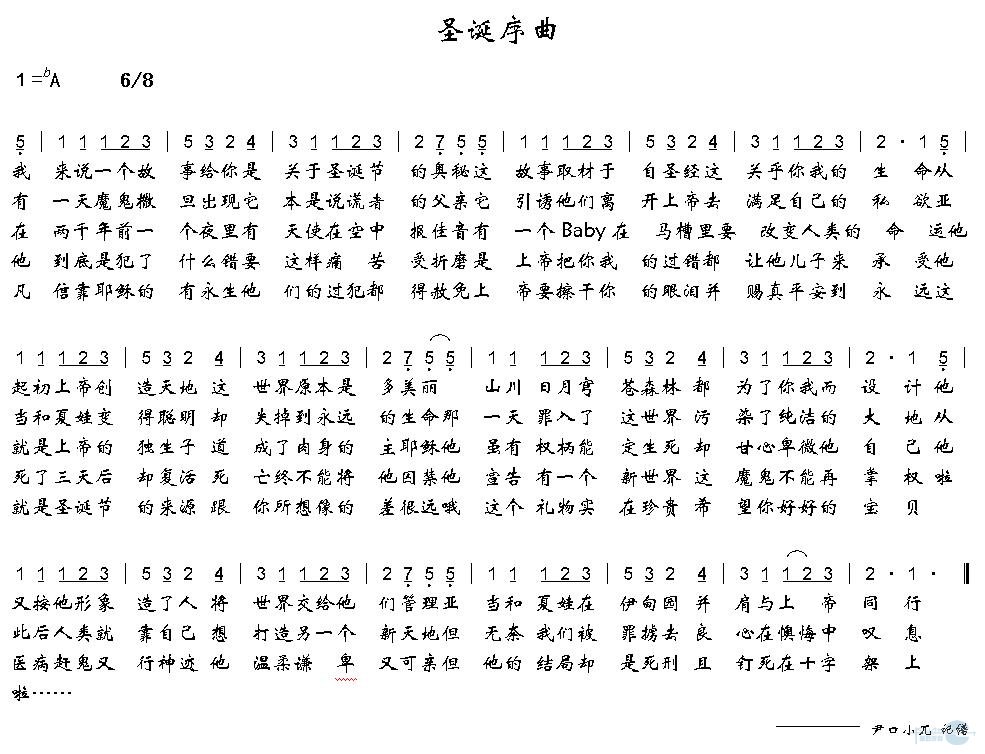 圣诞序曲
1=ᵇA 6/8
5 | 1 1 1 2 3 | 5 3 2 4 | 3 1 1 2 3 | 2 7 5 5 | 1 1 1 2 3 | 5 3 2 4 | 3 1 1 2 3 | 2 · 1 5 |
我 来说一个故 事给你是 关于圣诞节 的奥秘这 故事取材于 自圣经这 关乎你我的 生 命从
有 一天魔鬼撒 旦出现它 本是说谎者 的父亲它 引诱他们离 开上帝去 满足自己的 私 欲亚
在 两千年前一 个夜里有 天使在空中 报佳音有 一个Baby在 马槽里要 改变人类的 命 运他
他 到底是犯了 什么错要 这样痛 苦 受折磨是 上帝把你我 的过错都 让他儿子来 承 受他
凡 信靠耶稣的 有永生他 们的过犯都 得赦免上 帝要擦干你 的眼泪并 赐真平安到 永 远这
1 1 1 2 3 | 5 3 2 4 | 3 1 1 2 3 | 2 7 5 5 | 1 1 1 2 3 | 5 3 2 4 | 3 1 1 2 3 | 2 · 1 5 |
起初上帝创 造天地 这 世界原本是 多美丽 山川 日月穹 苍森林 都 为了你我而 设 计他
当和夏娃变 得聪明 却 失掉到永远 的生命那 一天 罪入了 这世界 污 染了纯洁的 大 地从
就是上帝的 独生子 道 成了肉身的 主耶稣他 虽有 权柄能 定生死 却 甘心卑微他 自 己他
死了三天后 却复活 死 亡终不能将 他囚禁他 宣告 有一个 新世界 这 魔鬼不能再 掌 权啦
就是圣诞节 的来源 跟 你所想像的 差很远哦 这个 礼物实 在珍贵 希 望你好好的 宝 贝
1 1 1 2 3 | 5 3 2 4 | 3 1 1 2 3 | 2 7 5 5 | 1 1 1 2 3 | 5 3 2 4 | 3 1 1 2 3 | 2 · 1 ·
又按他形象 造了人 将 世界交给他 们管理亚 当和 夏娃在 伊甸园 并 肩与上 帝 同 行
此后人类就 靠自己 想 打造另一个 新天地但 无奈 我们被 罪掳去 良 心在懊悔中 叹 息
医病赶鬼又 行神迹 他 温柔谦 卑 又可亲但 他的 结局却 是死刑 且 钉死在十字 架上
啦……
尹口小兀 记谱